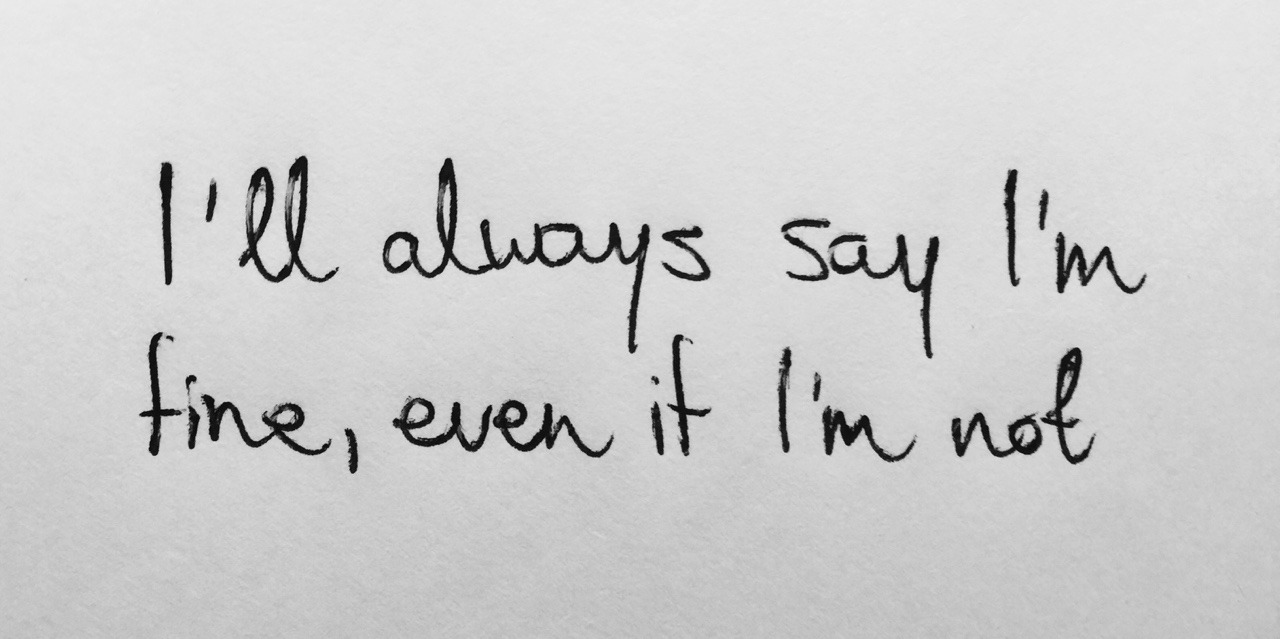 I'll always say I'm
fine, even if I'm not